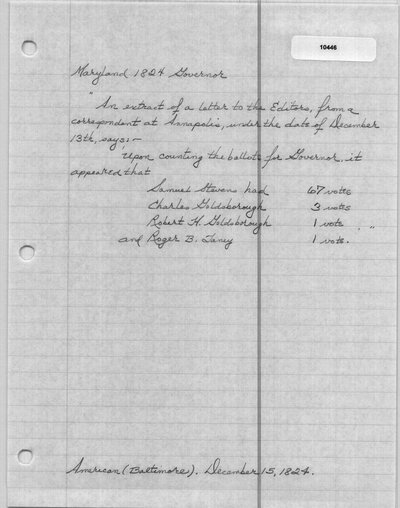 10446
Maryland 1824 Governor
"An extract of a letter to the Editors, from a
correspondent at Annapolis, under the date of December
13th, says:-
'Upon counting the ballots for Governor it
appeared that
Samuel Stevens had 67 votes
Charles Goldsborough 3 votes
Robert H. Goldsborough 1 vote
and Roger B. Taney 1 vote.'"
American (Baltimore). December 15, 1824.